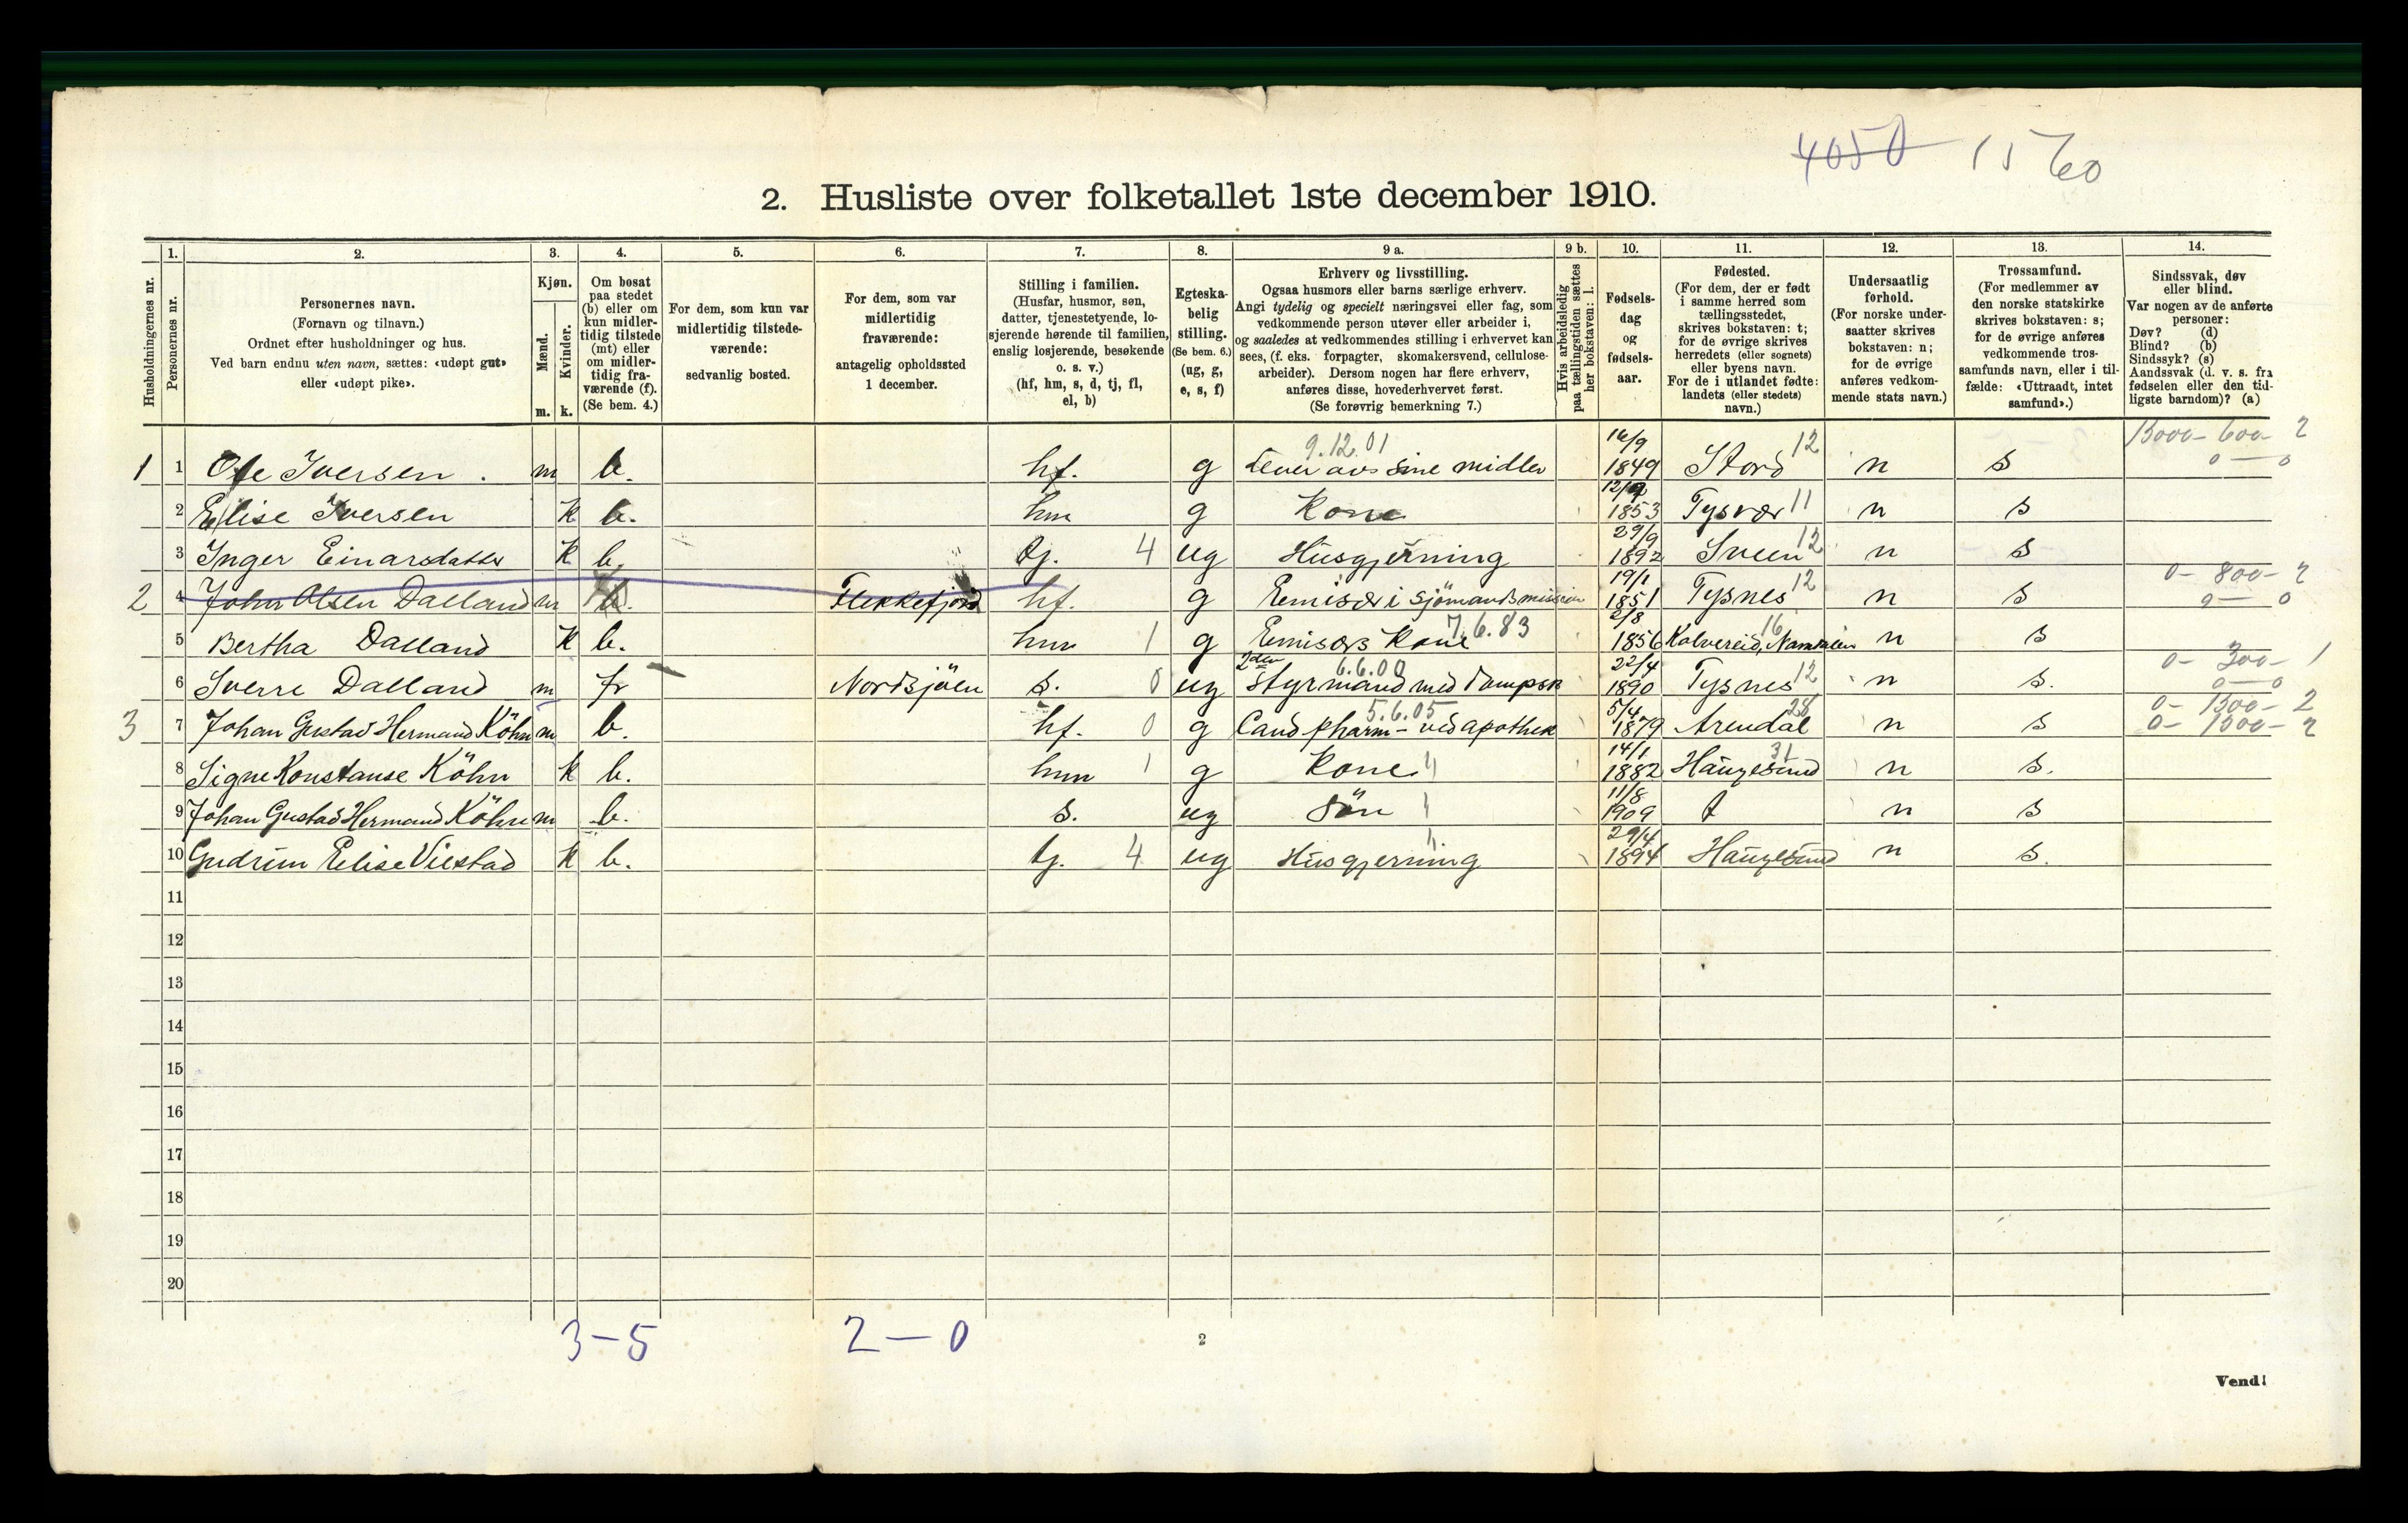 4050 1560
2. Husliste over folketallet 1ste december 1910.
Husholdningernes nr.
1.
Personernes nr.
2.
Personernes navn.
(Fornavn og tilnavn.)
Ordnet efter husholdninger og hus.
Ved barn endnu uten navn, sættes: «udøpt gut»
eller «udøpt pike».
3.
Kjøn.
Mænd.
Kvinder.
m. k.
4.
Om bosat
paa stedet
(b) eller om
kun midler-
tidig tilstede
(mt) eller
om midler-
tidig fra-
værende (f).
(Se bem. 4.)
5.
For dem, som kun var
midlertidig tilstede-
værende:
sedvanlig bosted.
6.
For dem, som var
midlertidig
fraværende:
antagelig opholdssted
1 december.
7.
Stilling i familien.
(Husfar, husmor, søn,
datter, tjenestetyende, lo-
sjerende hørende til familien,
enslig losjerende, besøkende
o. s. v.)
(hf, hm, s, d, tj, fl,
el, b)
8.
Egteska-
belig
stilling.
(Se bem. 6.)
(ug, g,
e, s, f)
9 a.
Erhverv og livsstilling.
Ogsaa husmors eller barns særlige erhverv.
Angi tydelig og specielt næringsvei eller fag, som
vedkommende person utøver eller arbeider i,
og saaledes at vedkommendes stilling i erhvervet kan
sees, (f. eks. forpagter, skomakersvend, cellulose-
arbeider). Dersom nogen har flere erhverv,
anføres disse, hovederhvervet først.
(Se forøvrig bemerkning 7.)
9 b.
Hvis arbeidsledig
paa tællingstiden sættes
her bokstaven: l.
10.
Fødsels-
dag
og
fødsels-
aar.
11.
Fødested.
(For dem, der er født
i samme herred som
tællingsstedet,
skrives bokstaven: t;
for de øvrige skrives
herredets (eller sognets)
eller byens navn.
For de i utlandet fødte:
landets (eller stedets)
navn.)
12.
Undersaatlig
forhold.
(For norske under-
saatter skrives
bokstaven: n;
for de øvrige
anføres vedkom-
mende stats navn.)
13.
Trossamfund.
(For medlemmer av
den norske statskirke
skrives bokstaven: s;
for de øvrige anføres
vedkommende tros-
samfunds navn, eller i til-
fælde: «Uttraadt, intet
samfund».)
14.
Sindssvak, døv
eller blind.
Var nogen av de anførte
personer:
Døv? (d)
Blind? (b)
Sindssyk? (s)
Aandssvak (d. v. s. fra
fødselen eller den tid-
ligste barndom)? (a)
1 1 Ole Iversen. m b. hf. g 9.12.01 Lever avs sine midler 16/9 1849 Stord 12 n s 15000- 600- 2
0 — 0
2 Elise Iversen k b. hm g Kone 1853 Tysvær 11 n s
3 Inger Einarsdatter k b. tj. 4 ug Husgjerning 29/9 1892 Sveen 12 n s
2 4 John Olsen Dalland m b. Flekkefjord hf. g Emisær i Sjömandsmission 19/1 1851 Tysnes 12 n s 0- 800- 2
0 — 0
5 Bertha Dalland k b. hm 1 g Emisærs Kone 7.6.83 2/8 1856 Kolvereid, Namdalen 16 n s
6 Sverre Dalland m fr Nordsjöen s. 0 ug 2den Styrmand med Dampsk 6.6.00 22/4 1890 Tysnes 12 n s. 0- 300- 1
0 — 0
3 7 Johan Gustav Hermand Köhn m b. hf. 0 g Cand pharm - ved apothek 5.6.05 5/4 1879 Arendal 28 n s 0- 1500- 2
0- 1000- 2
8 Signe Konstanse Köhn k b. hm 1 g Kone 14/1 1882 Haugesund 31 n s.
9 Johan Gustav Hermand Köhn m b. s. ug Sön 11/8 1909 t n s
10 Gudrun Elise Viestad k b. tj. 4 ug Husgjerning 29/4 1894 Haugesund n s.
11
12
13
14
15
16
17
18
19
20
3-5 2-0
2
Vend!